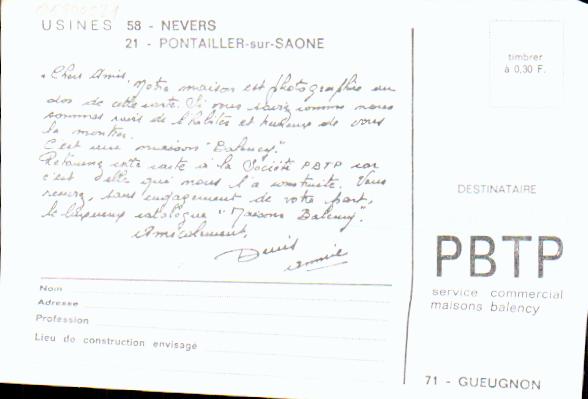 USINES 58 - NEVERS
21 - PONTAILLER-sur-SAONE
timbrer
à 0,30 F.
"Chers Amis, Notre maison est photographiée au
dos de cette carte. Si vous saviez comme nous
sommes ravis de l'habiter et heureux de vous
la montrer.
C'est une maison "Balency".
Retournez cette carte à la Société PBTP car
c'est elle qui nous l'a construite. Vous
recevrez, sans engagement de votre part,
le luxueux catalogue "Maisons Balency".
Amicalement,
Denis
Annie
Nom
Adresse
Profession
Lieu de construction envisagé
DESTINATAIRE
PBTP
service commercial
maisons balency
71 - GUEUGNON